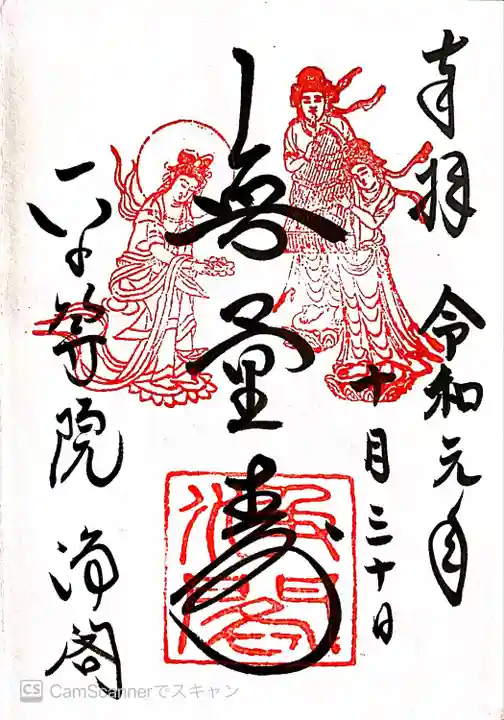 奉拝
令和元年
十月三十日
無量寿
平等院
浄閣
CS CamScannerでスキャン